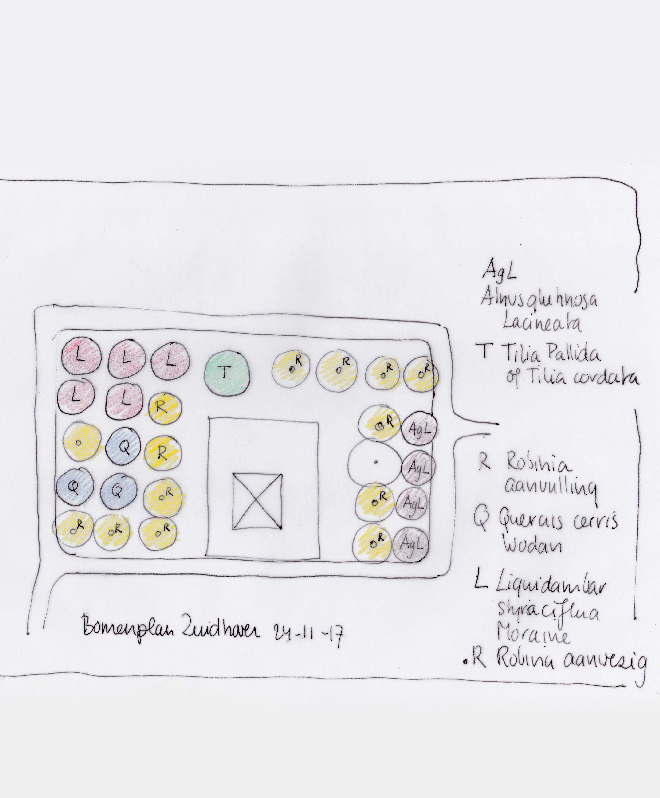 AgL
Alnusgluhnosa
Lacineata
T Tilia Pallida
of Tilia cordata
L L L T R R R R
L L R R AgL
Q R AgL
Q Q R R AgL
R R R R AgL
R Robinia
aanvulling
Q Quercus cerris
Wodan
L Liquidambar
styraciflua
Moraine
.R Robinia aanwezig
Bomenplan Zuidhaven 24-11-17